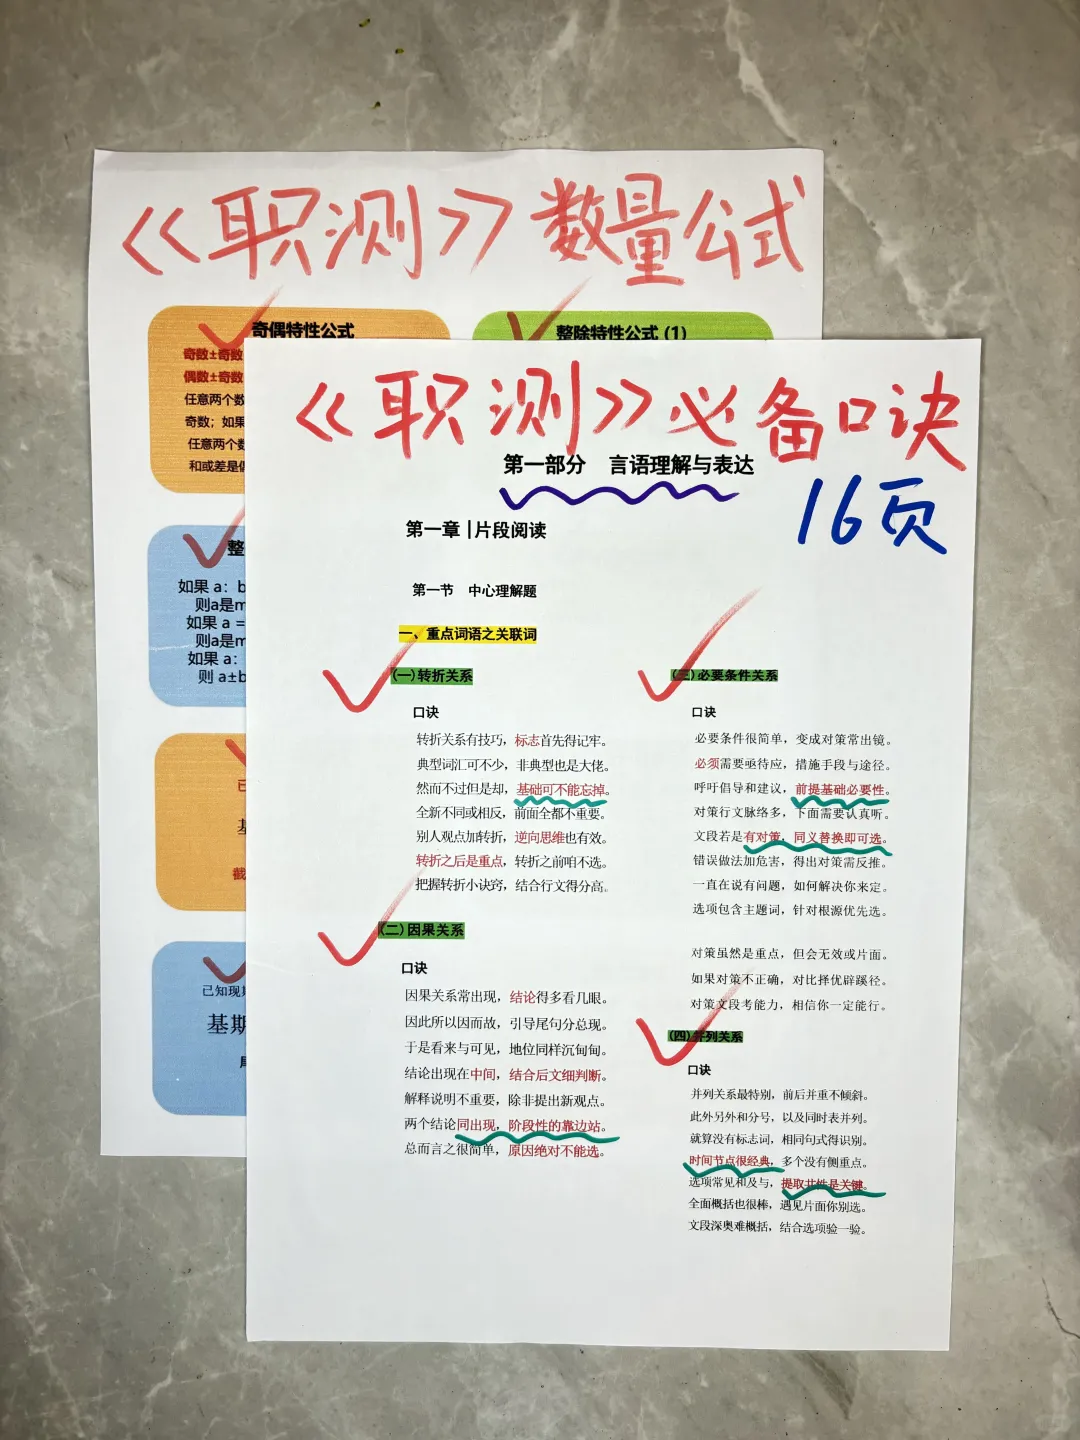 《职测》数量公式
奇偶特性公式
奇数±奇数
偶数±奇数
任意两个数
奇数；如果
任意两个数
和或差是偶
整除特性公式 (1)
整
如果 a：b
则a是m
如果 a =
则a是m
如果 a：
则 a±b
已
截
已知现期
基期
《职测》必备口诀
16页
第一部分 言语理解与表达
第一章 | 片段阅读
第一节 中心理解题
一、重点词语之关联词
(一) 转折关系
口诀
转折关系有技巧，标志首先得记牢。
典型词汇可不少，非典型也是大佬。
然而不过但是却，基础可不能忘掉。
全新不同或相反，前面全都不重要。
别人观点加转折，逆向思维也有效。
转折之后是重点，转折之前咱不选。
把握转折小诀窍，结合行文得分高。
(二) 因果关系
口诀
因果关系常出现，结论得多看几眼。
因此所以因而故，引导尾句分总现。
于是看来与可见，地位同样沉甸甸。
结论出现在中间，结合后文细判断。
解释说明不重要，除非提出新观点。
两个结论同出现，阶段性的靠边站。
总而言之很简单，原因绝对不能选。
(三) 必要条件关系
口诀
必要条件很简单，变成对策常出镜。
必须需要亟待应，措施手段与途径。
呼吁倡导和建议，前提基础必要性。
对策行文脉络多，下面需要认真听。
文段若是有对策，同义替换即可选。
错误做法加危害，得出对策需反推。
一直在说有问题，如何解决你来定。
选项包含主题词，针对根源优先选。
对策虽然是重点，但会无效或片面。
如果对策不正确，对比择优辟蹊径。
对策文段考能力，相信你一定能行。
(四) 并列关系
口诀
并列关系最特别，前后并重不倾斜。
此外另外和分号，以及同时表并列。
就算没有标志词，相同句式得识别。
时间节点很经典，多个没有侧重点。
选项常见和及与，提取共性是关键。
全面概括也很棒，遇见片面你别选。
文段深奥难概括，结合选项验一验。